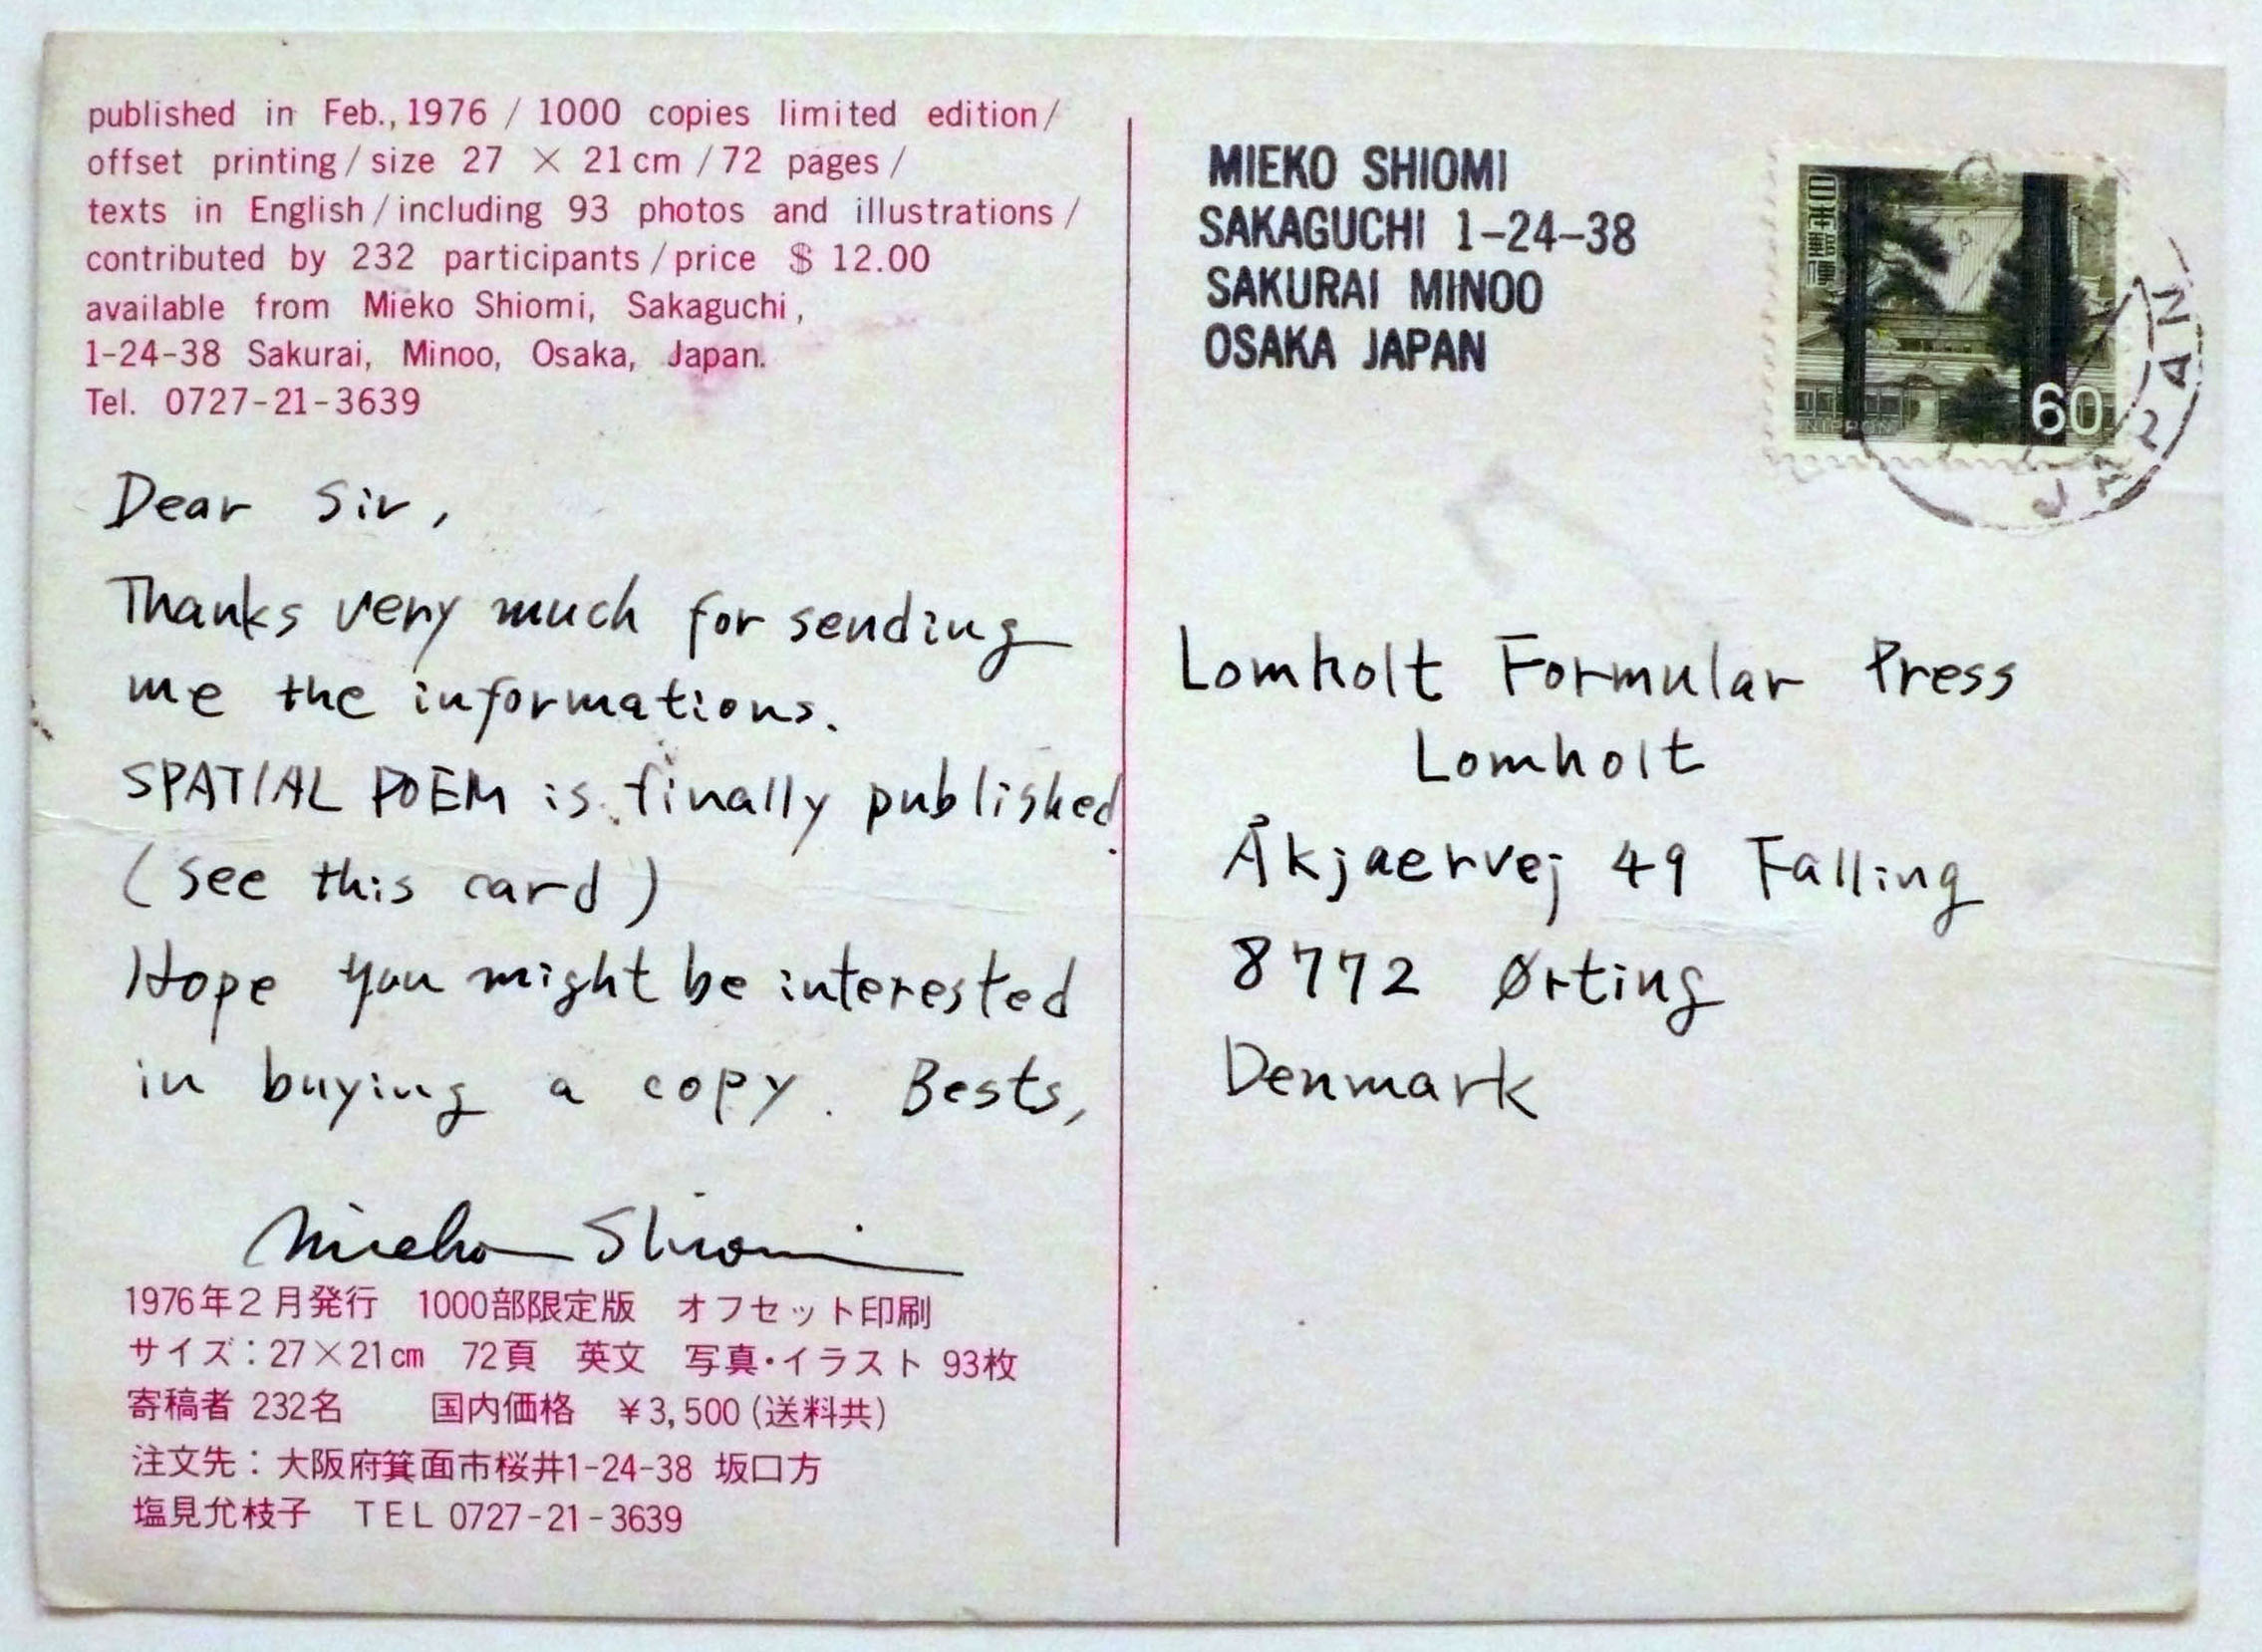 published in Feb., 1976 / 1000 copies limited edition/
offset printing / size 27 × 21 cm / 72 pages /
texts in English / including 93 photos and illustrations /
contributed by 232 participants / price $ 12.00
available from Mieko Shiomi, Sakaguchi,
1-24-38 Sakurai, Minoo, Osaka, Japan.
Tel. 0727-21-3639
Dear Sir,
Thanks very much for sending
me the informations.
SPATIAL POEM is finally published.
(see this card)
Hope you might be interested
in buying a copy. Bests,
Mieko Shiomi
1976年2月発行 1000部限定版 オフセット印刷
サイズ：27×21cm 72頁 英文 写真・イラスト 93枚
寄稿者 232名 国内価格 ¥3,500 (送料共)
注文先：大阪府箕面市桜井1-24-38 坂口方
塩見允枝子 TEL 0727-21-3639
MIEKO SHIOMI
SAKAGUCHI 1-24-38
SAKURAI MINOO
OSAKA JAPAN
日本郵便
60
NIPPON
Lomholt Formular Press
Lomholt
Åkjaervej 49 Falling
8772 Ørting
Denmark